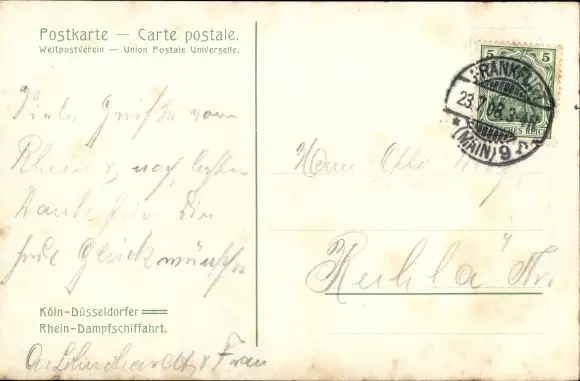 Postkarte — Carte postale.
Weltpostverein — Union Postale Universelle.
5 5
FRANKFURT
23.7.08.3-4N
* (MAIN) 9 *
Viele Grüße vom
Rhein u. noch besten
Dank für die
Glückwünsche
Herrn Otto
Ruhla
Köln-Düsseldorfer
Rhein-Dampfschiffahrt.
u Frau